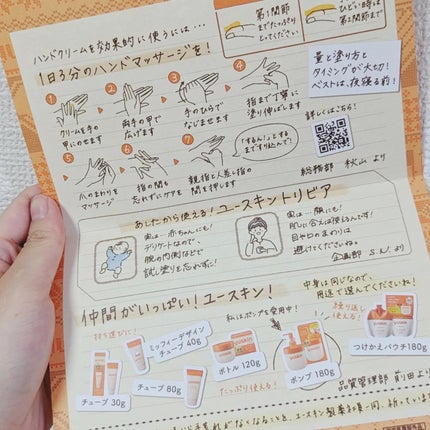 ハンドクリームを効果的に使うには…
第1関節
までたっぷり
とってください
ひどい時は
第2関節まで
1日3分のハンドマッサージを!
量と塗り方と
タイミングが大切!
ベストは、夜寝る前!
1
2
3
4
クリームを手の
甲にのせます
両手の甲で
広げます
手のひらで
なじませます
指まで丁寧に
塗り伸ばします
詳しくはこちら!
5
6
7
爪のまわりを
マッサージ
指の間も
忘れずにケアを
親指と人差し指の
間を押します
「するん!」とする
まですり込んで!
総務部 秋山 より
あしたから使える!ユースキントリビア
実は…赤ちゃんにも!
デリケートなので、
腕の内側などで
試し塗りを忘れずに!
実は…顔にも!
肌に合えば使えるんです!
目や口のまわりは
避けてくださいね。
企画部 S.N.より
仲間がいっぱい!ユースキン!
中身は同じなので、
用途で選んでくださいね!
持ち運びに!
ミッフィーデザイン
チューブ 40g
私はポンプを愛用中!
繰り返し
使える!
チューブ 30g
チューブ 80g
ボトル 120g
たっぷり使える!
ポンプ 180g
つけかえパウチ180g
品質管理部 前田より